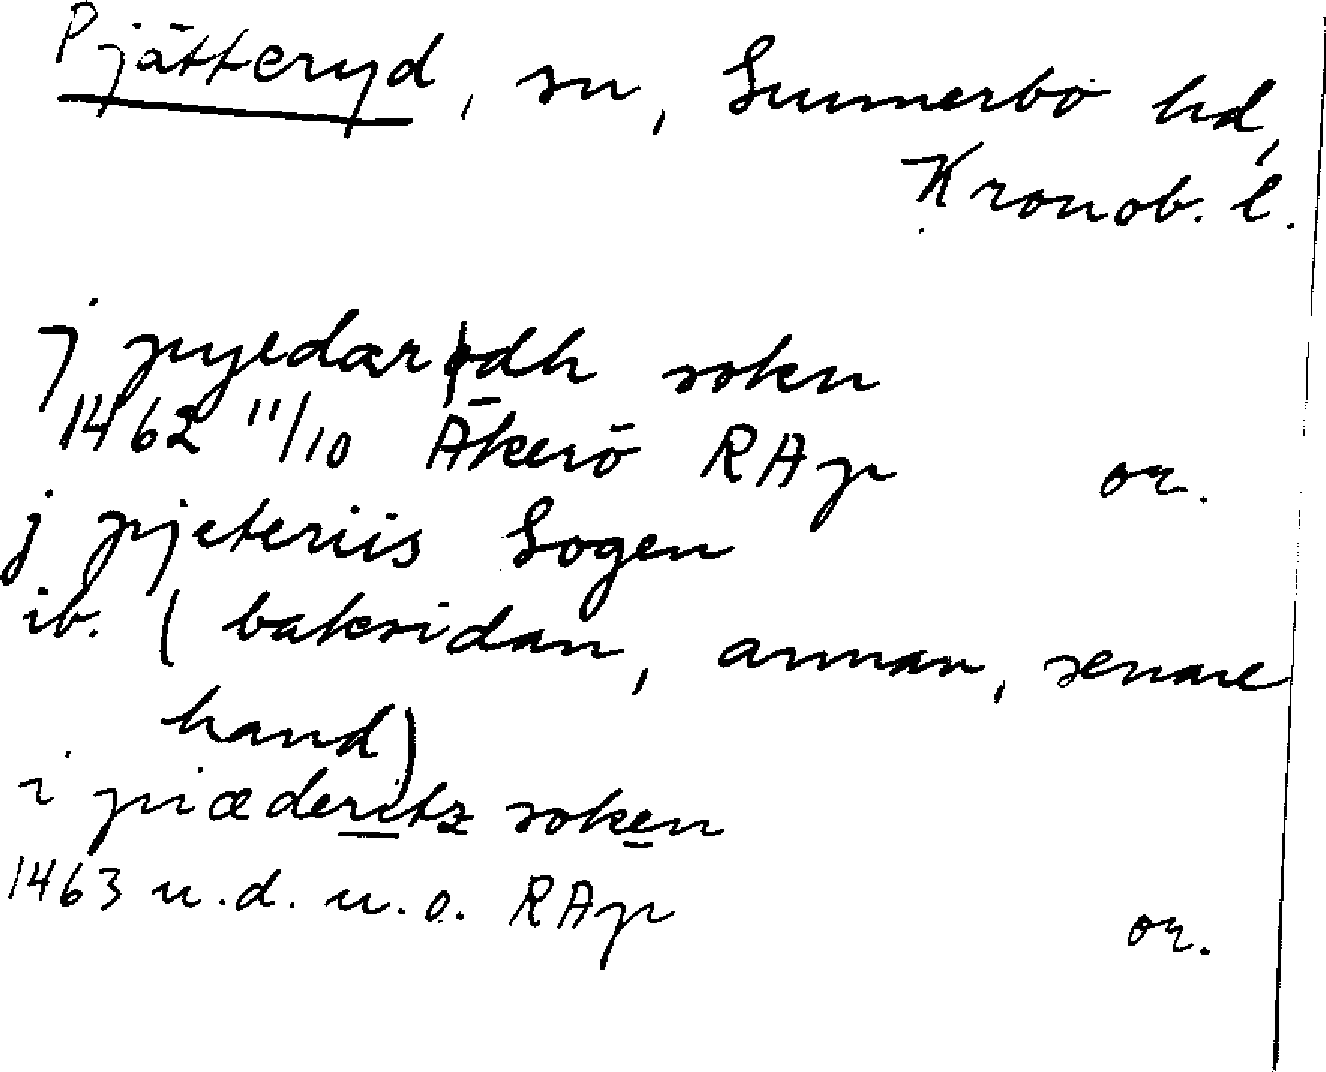 Pjätteryd, sn, Sunnerbo hd,
Kronob. l.
j pyedærødh sokn
1462 11/10 Åkerö RAp or.
j pjeteriis Sogen
ib. (baksidan, annan, senare
hand)
i piæderitz soken
1463 u.d. u.o. RAp or.